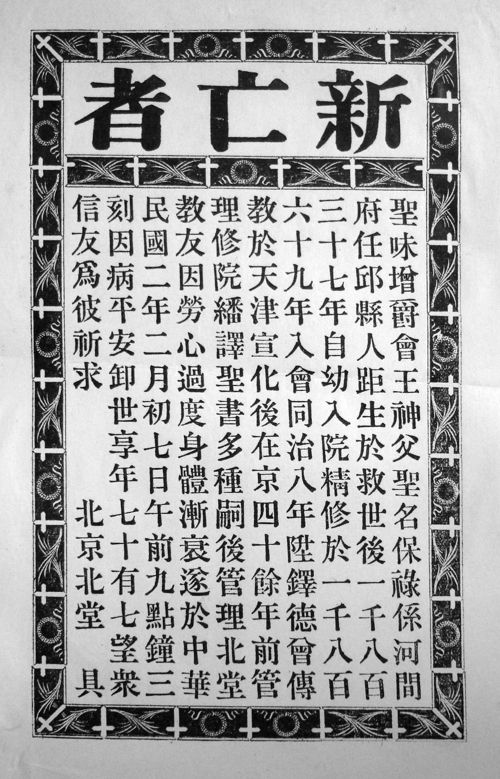 新亡者
聖味增爵會王神父聖名保祿係河間
府任邱縣人距生於救世後一千八百
三十七年自幼入院精修於一千八百
六十九年入會同治八年陞鐸德曾傳
教於天津宣化後在京四十餘年前管
理修院繙譯聖書多種嗣後管理北堂
教友因勞心過度身體漸衰遂於中華
民國二年二月初七日午前九點鐘三
刻因病平安卸世享年七十有七望衆
信友爲彼祈求 北京北堂 具